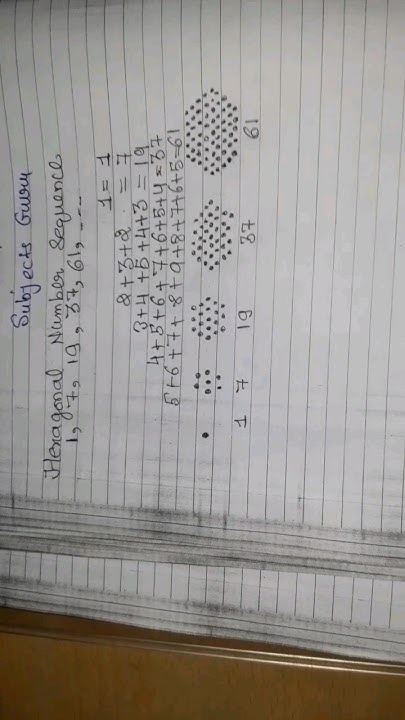 Subjects Guru
Hexagonal Number Sequence
1, 7, 19, 37, 61, ----
1 = 1
2+3+2 = 7
3+4+5+4+3 = 19
4+5+6+7+6+5+4 = 37
5+6+7+8+9+8+7+6+5=61
1 7 19 37 61